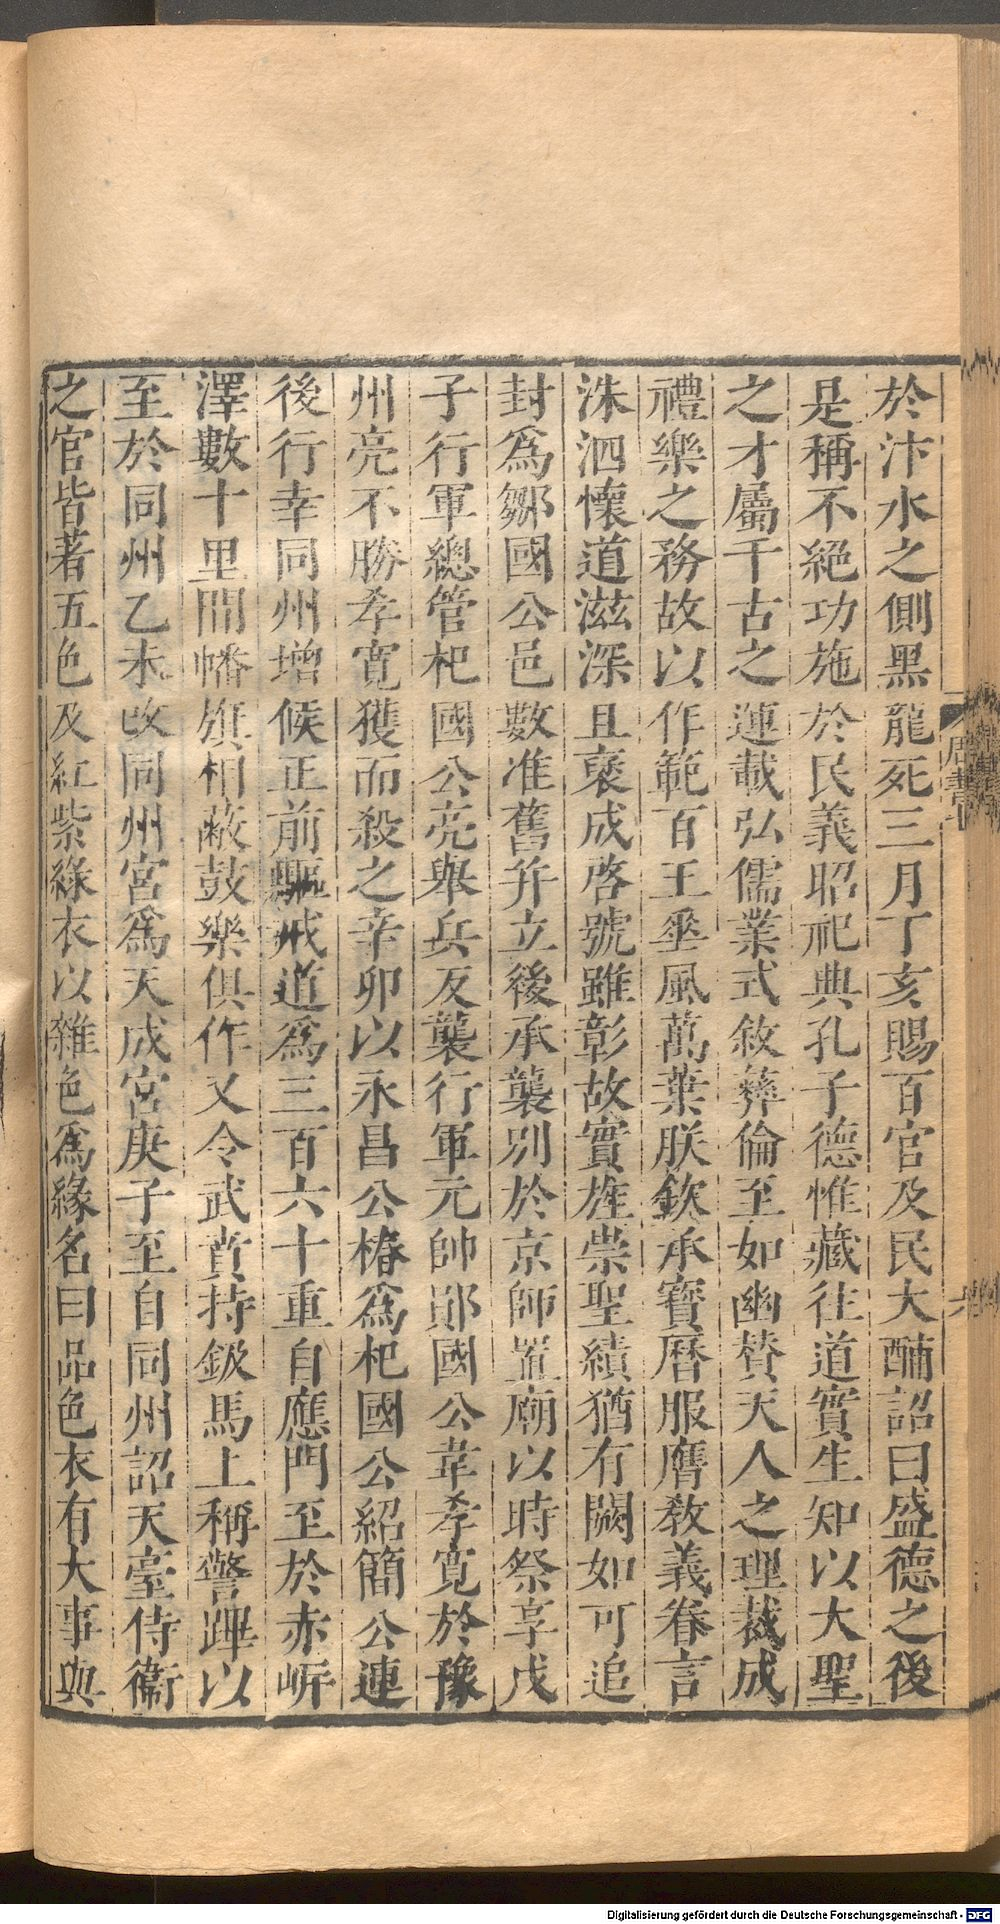 於汴水之側黑龍死三月丁亥賜百官及民大酺詔曰盛德之後
是稱不絕功施於民義昭祀典孔子德惟藏往道實生知以大聖
之才屬千古之運載弘儒業式敘彝倫至如幽贊天人之理裁成
禮樂之務故以作範百王垂風萬葉朕欽承寶曆服膺敎義眷言
洙泗懷道滋深且褒成啓號雖彰故實旌崇聖績猶有闕如可追
封爲鄒國公邑數准舊并立後承襲別於京師置廟以時祭享戊
子行軍總管杞國公亮舉兵反襲行軍元帥鄖國公韋孝寬於豫
州亮不勝孝寬獲而殺之辛卯以永昌公椿爲杞國公紹簡公連
後行幸同州增候正前驅戒道爲三百六十重自應門至於赤岸
澤數十里間幡旗相蔽鼓樂俱作又令武賁持鈒馬上稱警蹕以
至於同州乙未改同州宮爲天成宮庚子至自同州詔天臺侍衞
之官皆著五色及紅紫綠衣以雜色爲緣名曰品色衣有大事與
周書七
Digitalisierung gefördert durch die Deutsche Forschungsgemeinschaft - DFG